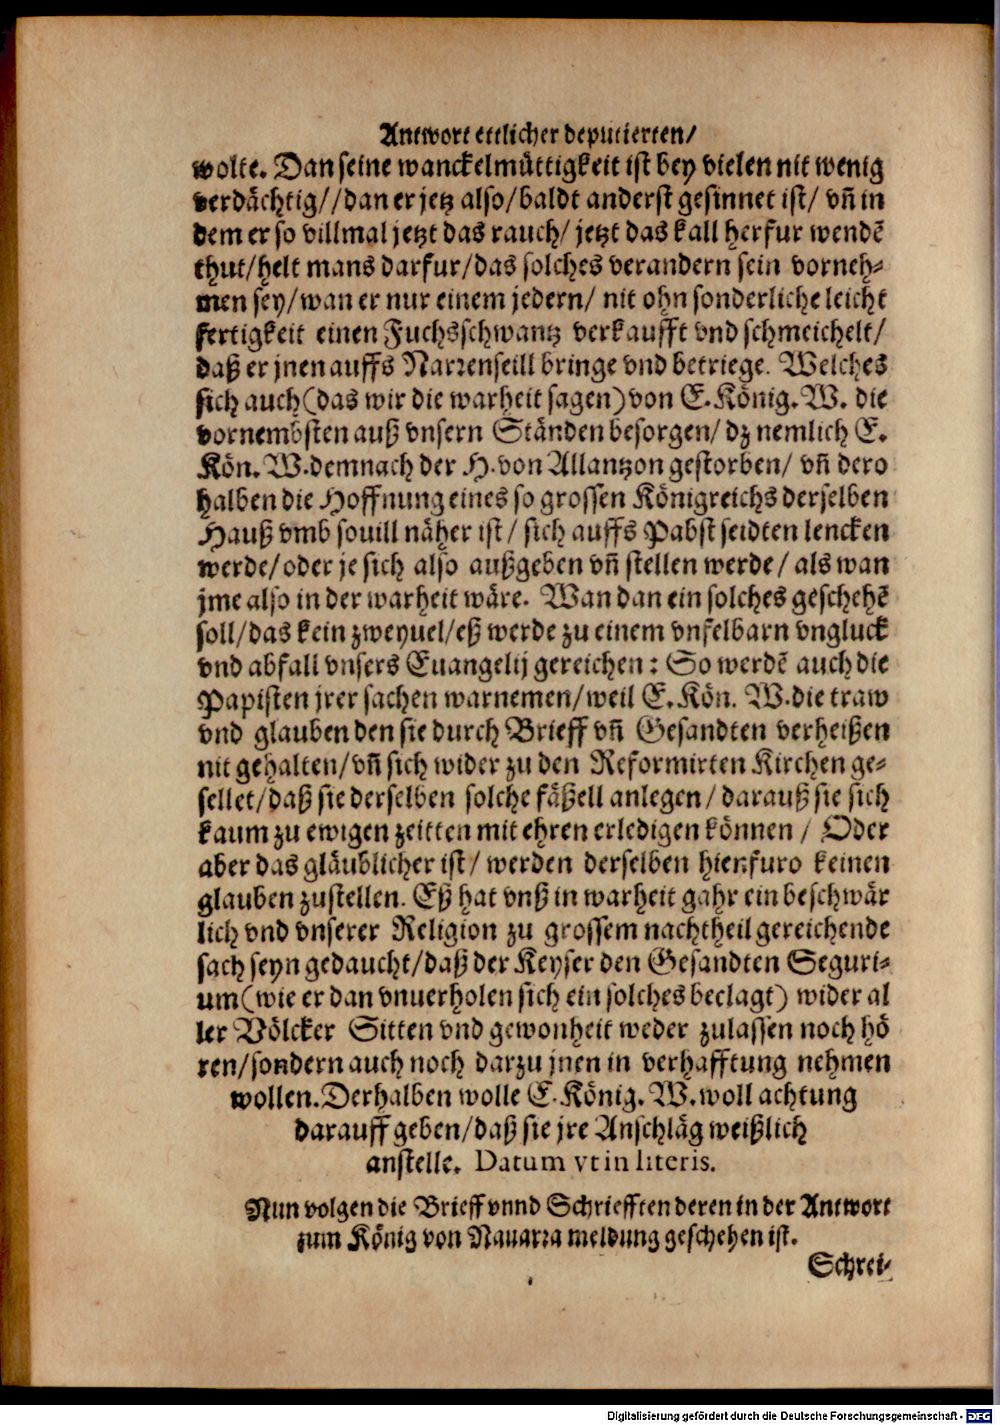 Antwort ettlicher deputierten/
wolte. Dan seine wanckelmüttigkeit ist bey vielen nit wenig
verdächtig//dan er jetz also/baldt anderst gesinnet ist/ vn̄ in
dem er so villmal jetzt das rauch/ jetzt das kall herfur wendē
thut/helt mans darfur/das solches verandern sein vorneh-
men sey/wan er nur einem jedern/ nit ohn sonderliche leicht
fertigkeit einen Fuchsschwantz verkaufft vnd schmeichelt/
daß er jnen auffs Narrenseill bringe vnd betriege. Welches
sich auch(das wir die warheit sagen)von E. König. W. die
vornembsten auß vnsern Ständen besorgen/ dz nemlich E.
Kön. W. demnach der H. von Allantzon gestorben/ vn̄ dero
halben die Hoffnung eines so grossen Königreichs derselben
Hauß vmb souill näher ist/ sich auffs Pabst seidten lencken
werde/oder je sich also außgeben vn̄ stellen werde/ als wan
jme also in der warheit wäre. Wan dan ein solches geschehē
soll/das kein zweyuel/eß werde zu einem vnfelbarn vngluck
vnd abfall vnsers Euangelij gereichen: So werdē auch die
Papisten jrer sachen warnemen/weil E. Kön. W. die traw
vnd glauben den sie durch Brieff vn̄ Gesandten verheißen
nit gehalten/vn̄ sich wider zu den Reformirten Kirchen ge-
sellet/daß sie derselben solche fäßell anlegen/ darauß sie sich
kaum zu ewigen zeitten mit ehren erledigen können / Oder
aber das gläublicher ist/ werden derselben hienfuro keinen
glauben zustellen. Eß hat vnß in warheit gahr ein beschwär
lich vnd vnserer Religion zu grossem nachtheil gereichende
sach seyn gedaucht/daß der Keyser den Gesandten Seguri-
um(wie er dan vnuerholen sich ein solches beclagt) wider al
ler Völcker Sitten vnd gewonheit weder zulassen noch hö
ren/sondern auch noch darzu jnen in verhafftung nehmen
wollen. Derhalben wolle E. König. W. woll achtung
darauff geben/daß sie jre Anschläg weißlich
anstelle. Datum vt in literis.
Nun volgen die Brieff vnnd Schriefften deren in der Antwort
zum König von Nauarra meldung geschehen ist.
Schrei-
Digitalisierung gefördert durch die Deutsche Forschungsgemeinschaft - DFG